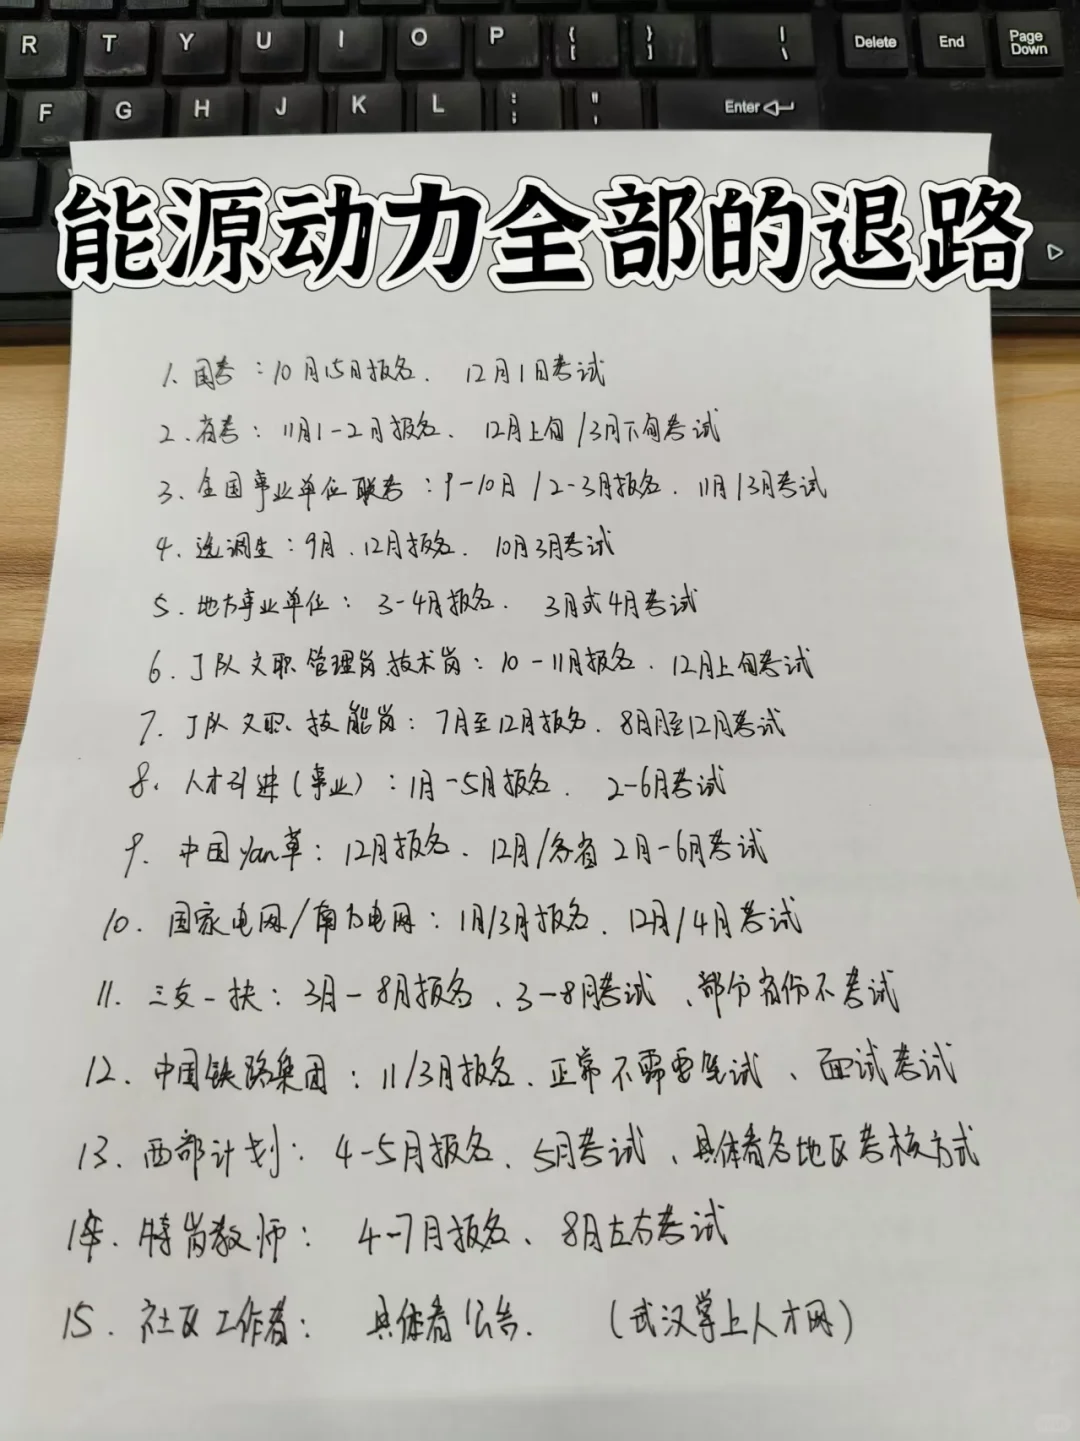 R T Y U I O P { [ } ] | \ Delete End Page Down
F G H J K L : ; " ' Enter
能源动力全部的退路
1、国考：10月15日报名、 12月1日考试
2、省考：11月1-2月报名、 12月上旬/3月下旬考试
3、全国事业单位联考：9-10月/2-3月报名、11月/3月考试
4、选调生：9月、12月报名、 10月3月考试
5、地方事业单位： 3-4月报名、 3月或4月考试
6、J队文职管理岗技术岗：10-11月报名、12月上旬考试
7、J队文职技能岗：7月至12月报名、8月至12月考试
8、人才引进（事业）：1月-5月报名、 2-6月考试
9、中国yan草：12月报名、12月/各省2月-6月考试
10、国家电网/南方电网：1月/3月报名、12月/4月考试
11、三支一扶：3月-8月报名、3-8月考试、部分省份不考试
12、中国铁路集团：11/3月报名、正常不需要笔试、面试考试
13、西部计划： 4-5月报名、5月考试、具体看各地区考核方式
14、特岗教师： 4-7月报名、8月左右考试
15、社区工作者： 具体看公告. （武汉掌上人才网）